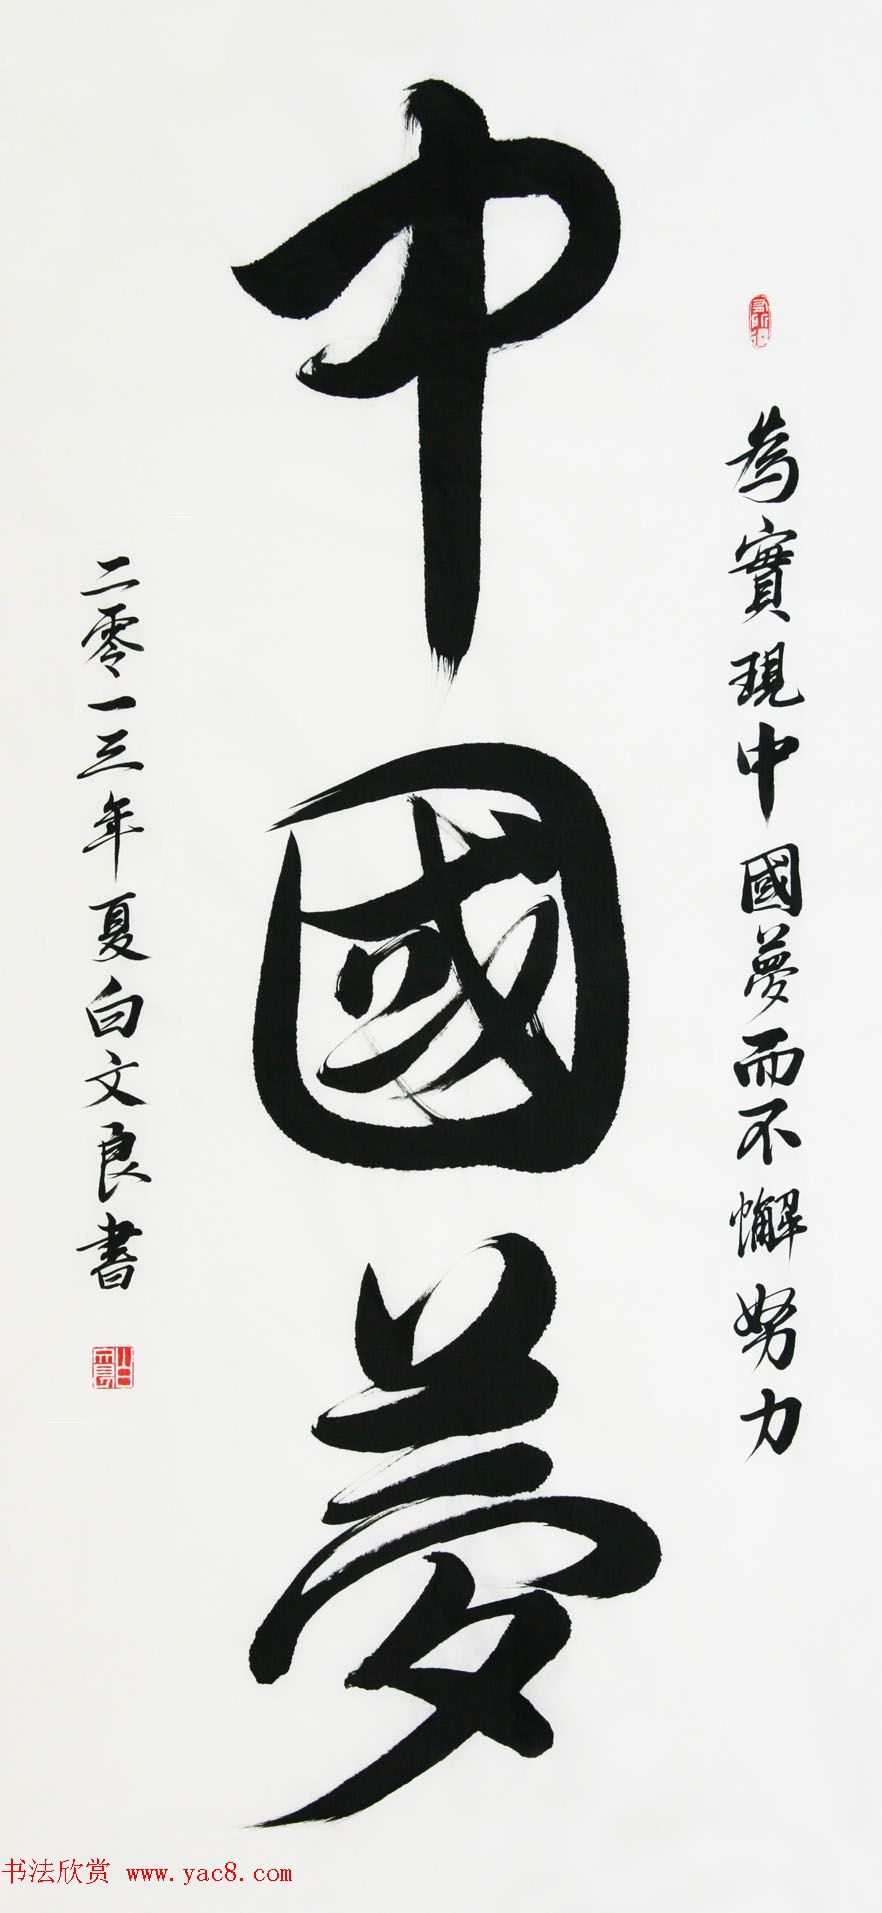 為實現中國夢而不懈努力
中國夢
二零一三年夏白文良書
书法欣赏 www.yac8.com